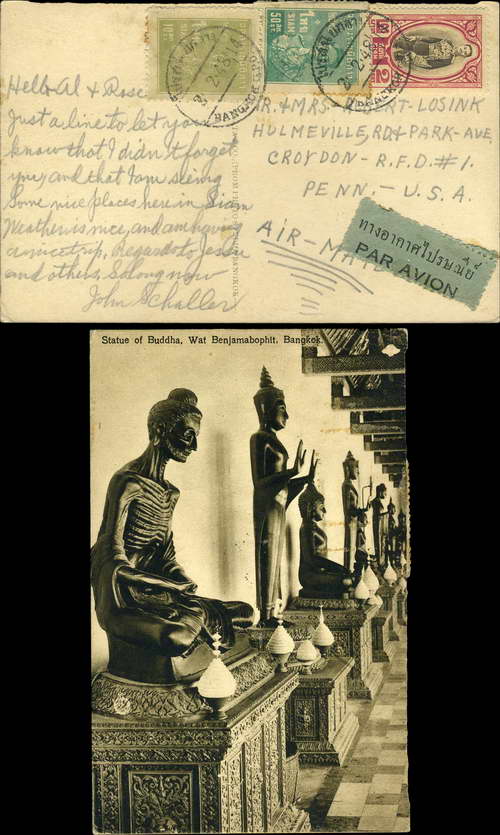 Hello Al + Rose
Just a line to let you
know that I didn't forget
you, and that I am seeing
Some nice places here in Siam
Weather is nice, and am having
a nice trip, Regards to
and others, So long now
John Schaller
MR. + MRS. ROBERT-LOSINK
HULMEVILLE, RD + PARK-AVE
CROYDON - R.F.D. #1.
PENN. - U.S.A.
AIR-MAIL
ทางอากาศไปรษณีย์
PAR AVION
BANGKOK
SIAM
Statue of Buddha, Wat Benjamabophit, Bangkok.